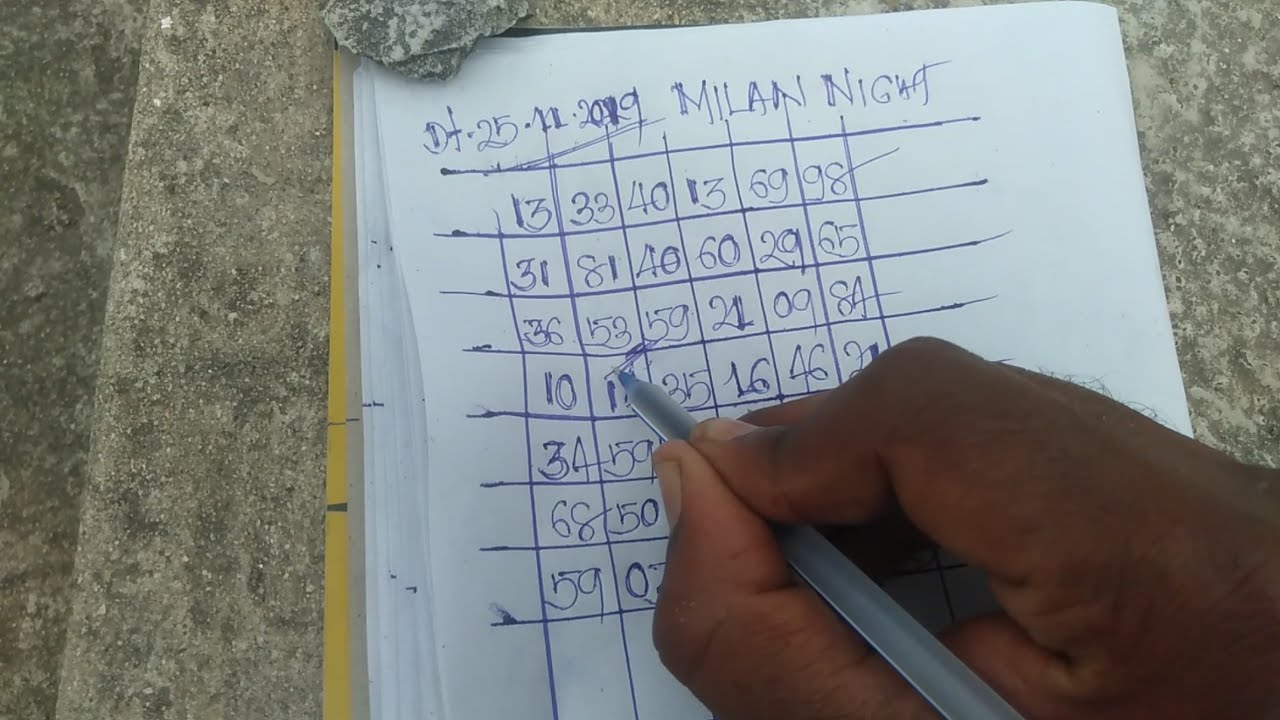 Dt.25.11.2019 MILAN NIGHT
13 33 40 13 69 98
31 81 40 60 29 65
36 53 59 21 09 84
10 35 16 46
34 59
68 50
59